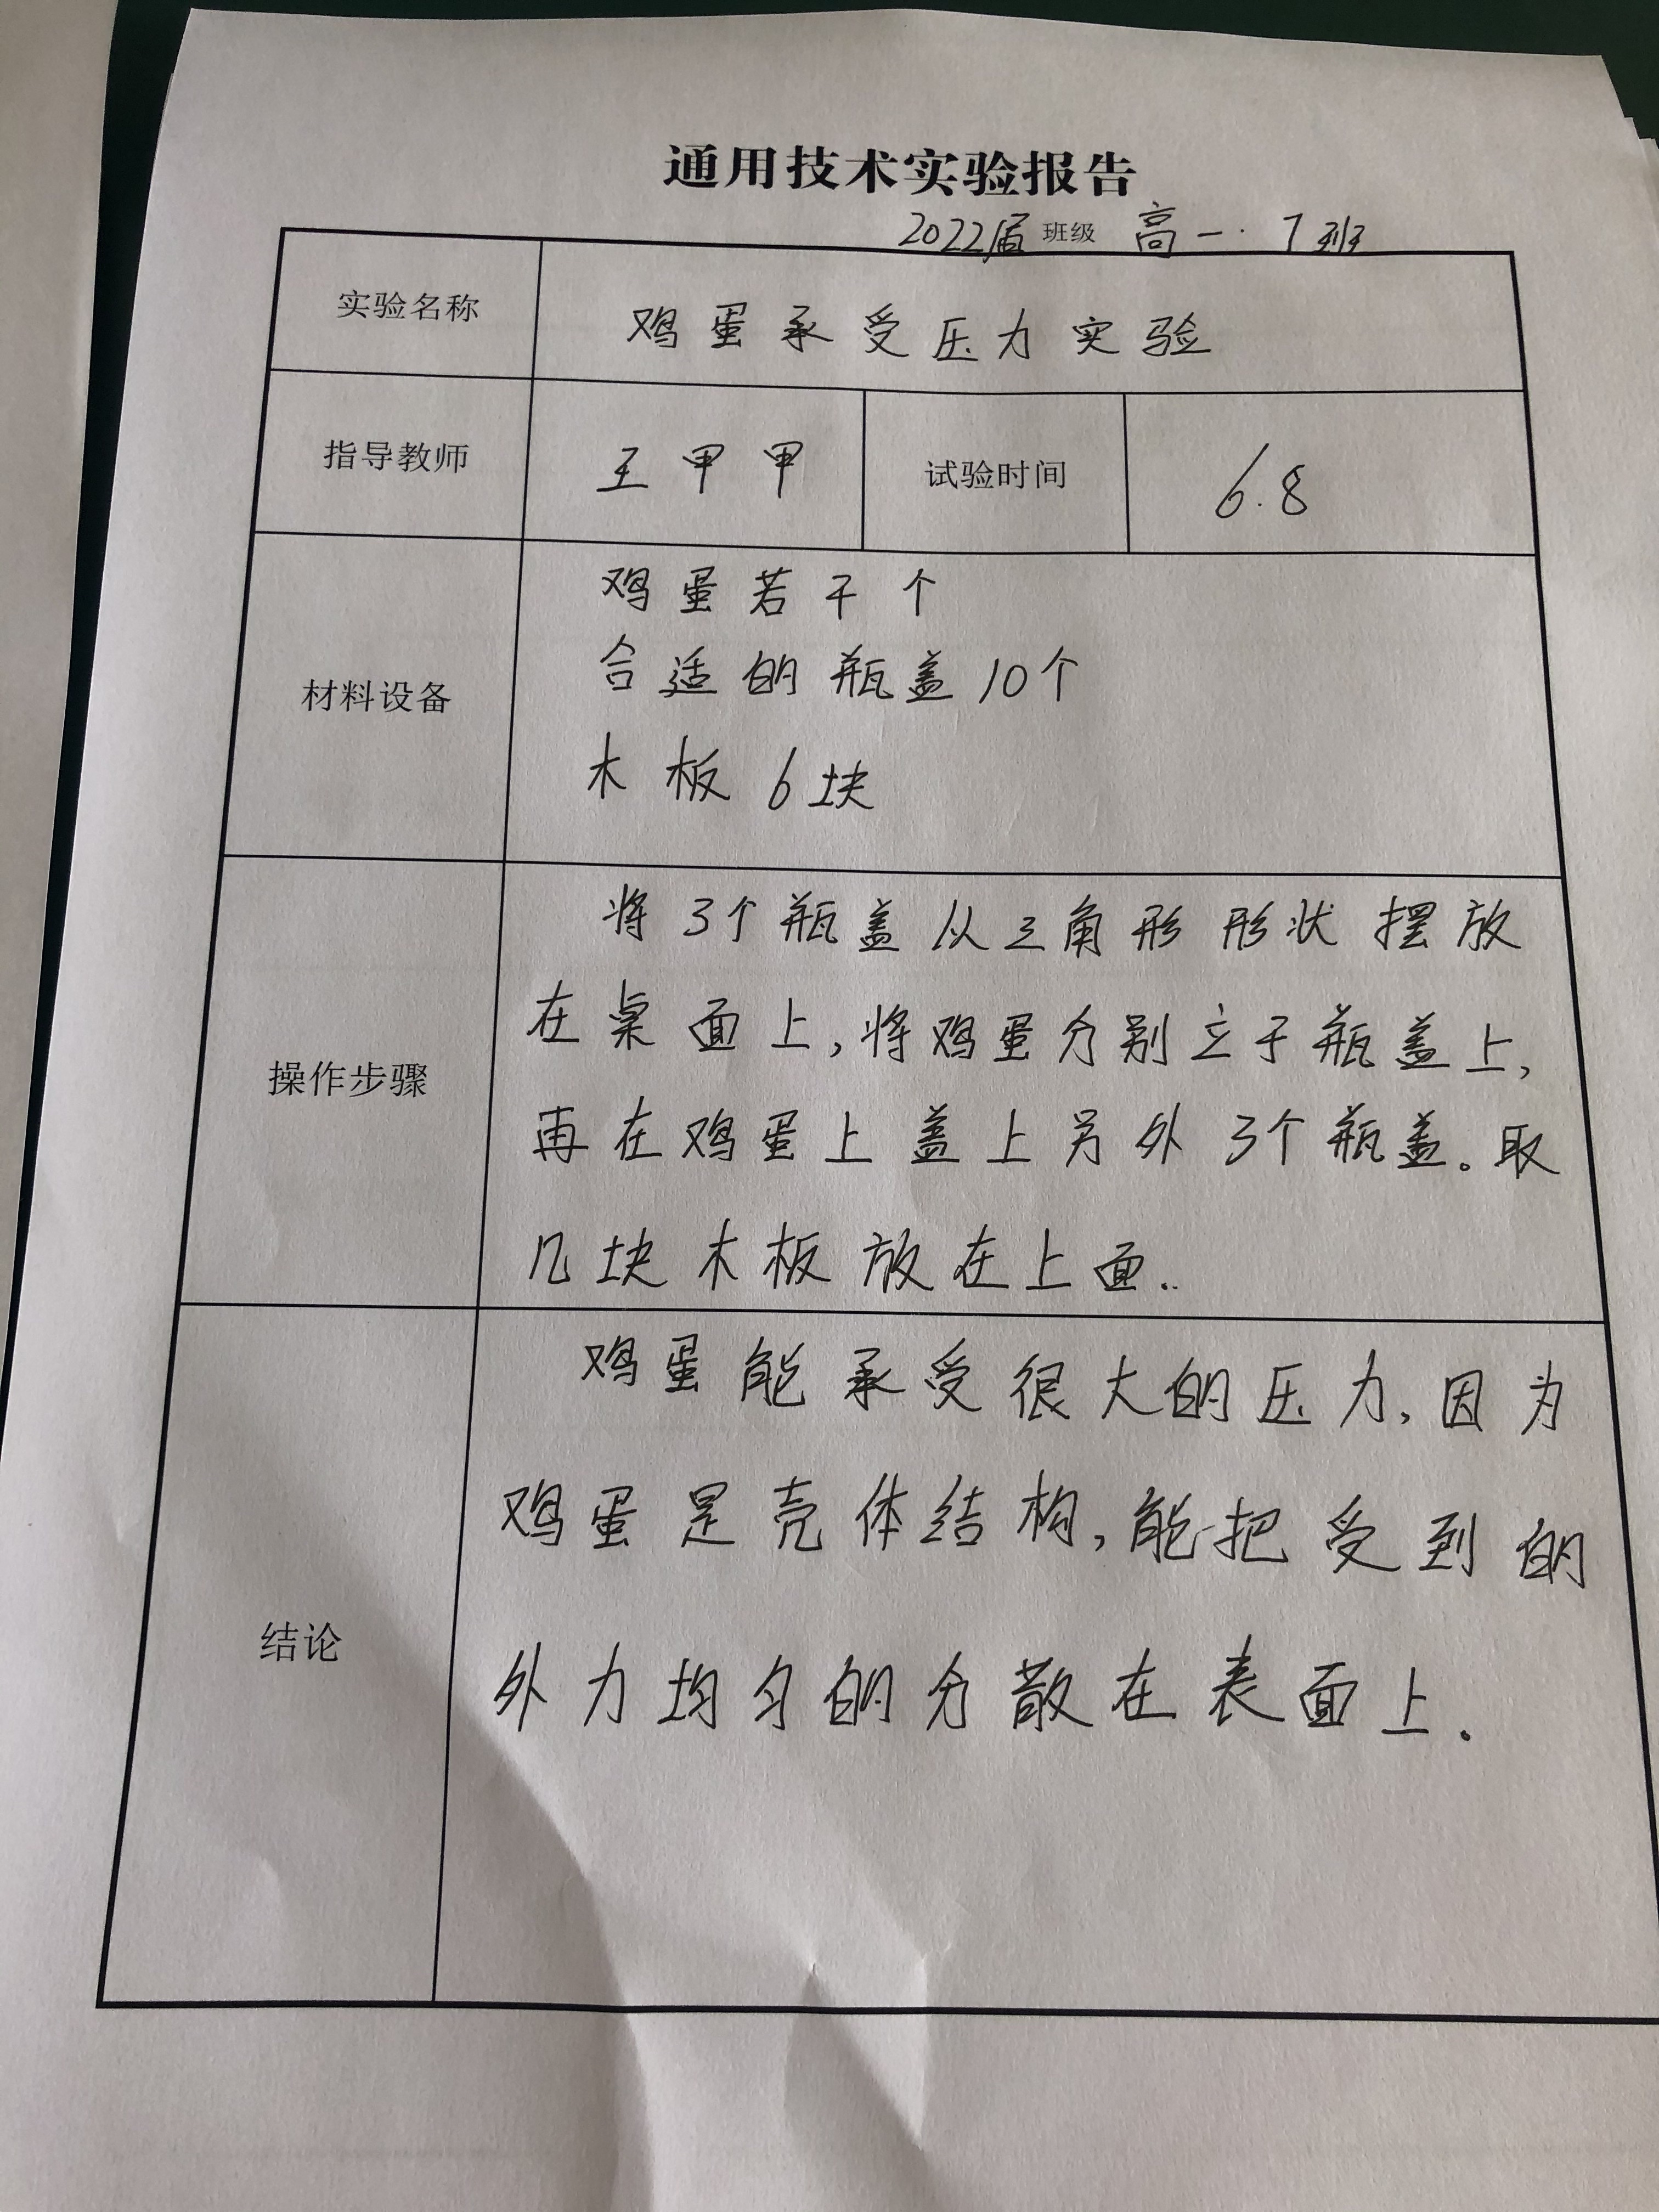 通用技术实验报告
2022届 班级 高一·7班
实验名称 鸡蛋承受压力实验
指导教师 王甲甲 试验时间 6.8
材料设备
鸡蛋若干个
合适的瓶盖10个
木板6块
操作步骤
将3个瓶盖从三角形形状摆放
在桌面上,将鸡蛋分别立于瓶盖上,
再在鸡蛋上盖上另外3个瓶盖。取
几块木板放在上面..
结论
鸡蛋能承受很大的压力,因为
鸡蛋是壳体结构,能把受到的
外力均匀的分散在表面上.